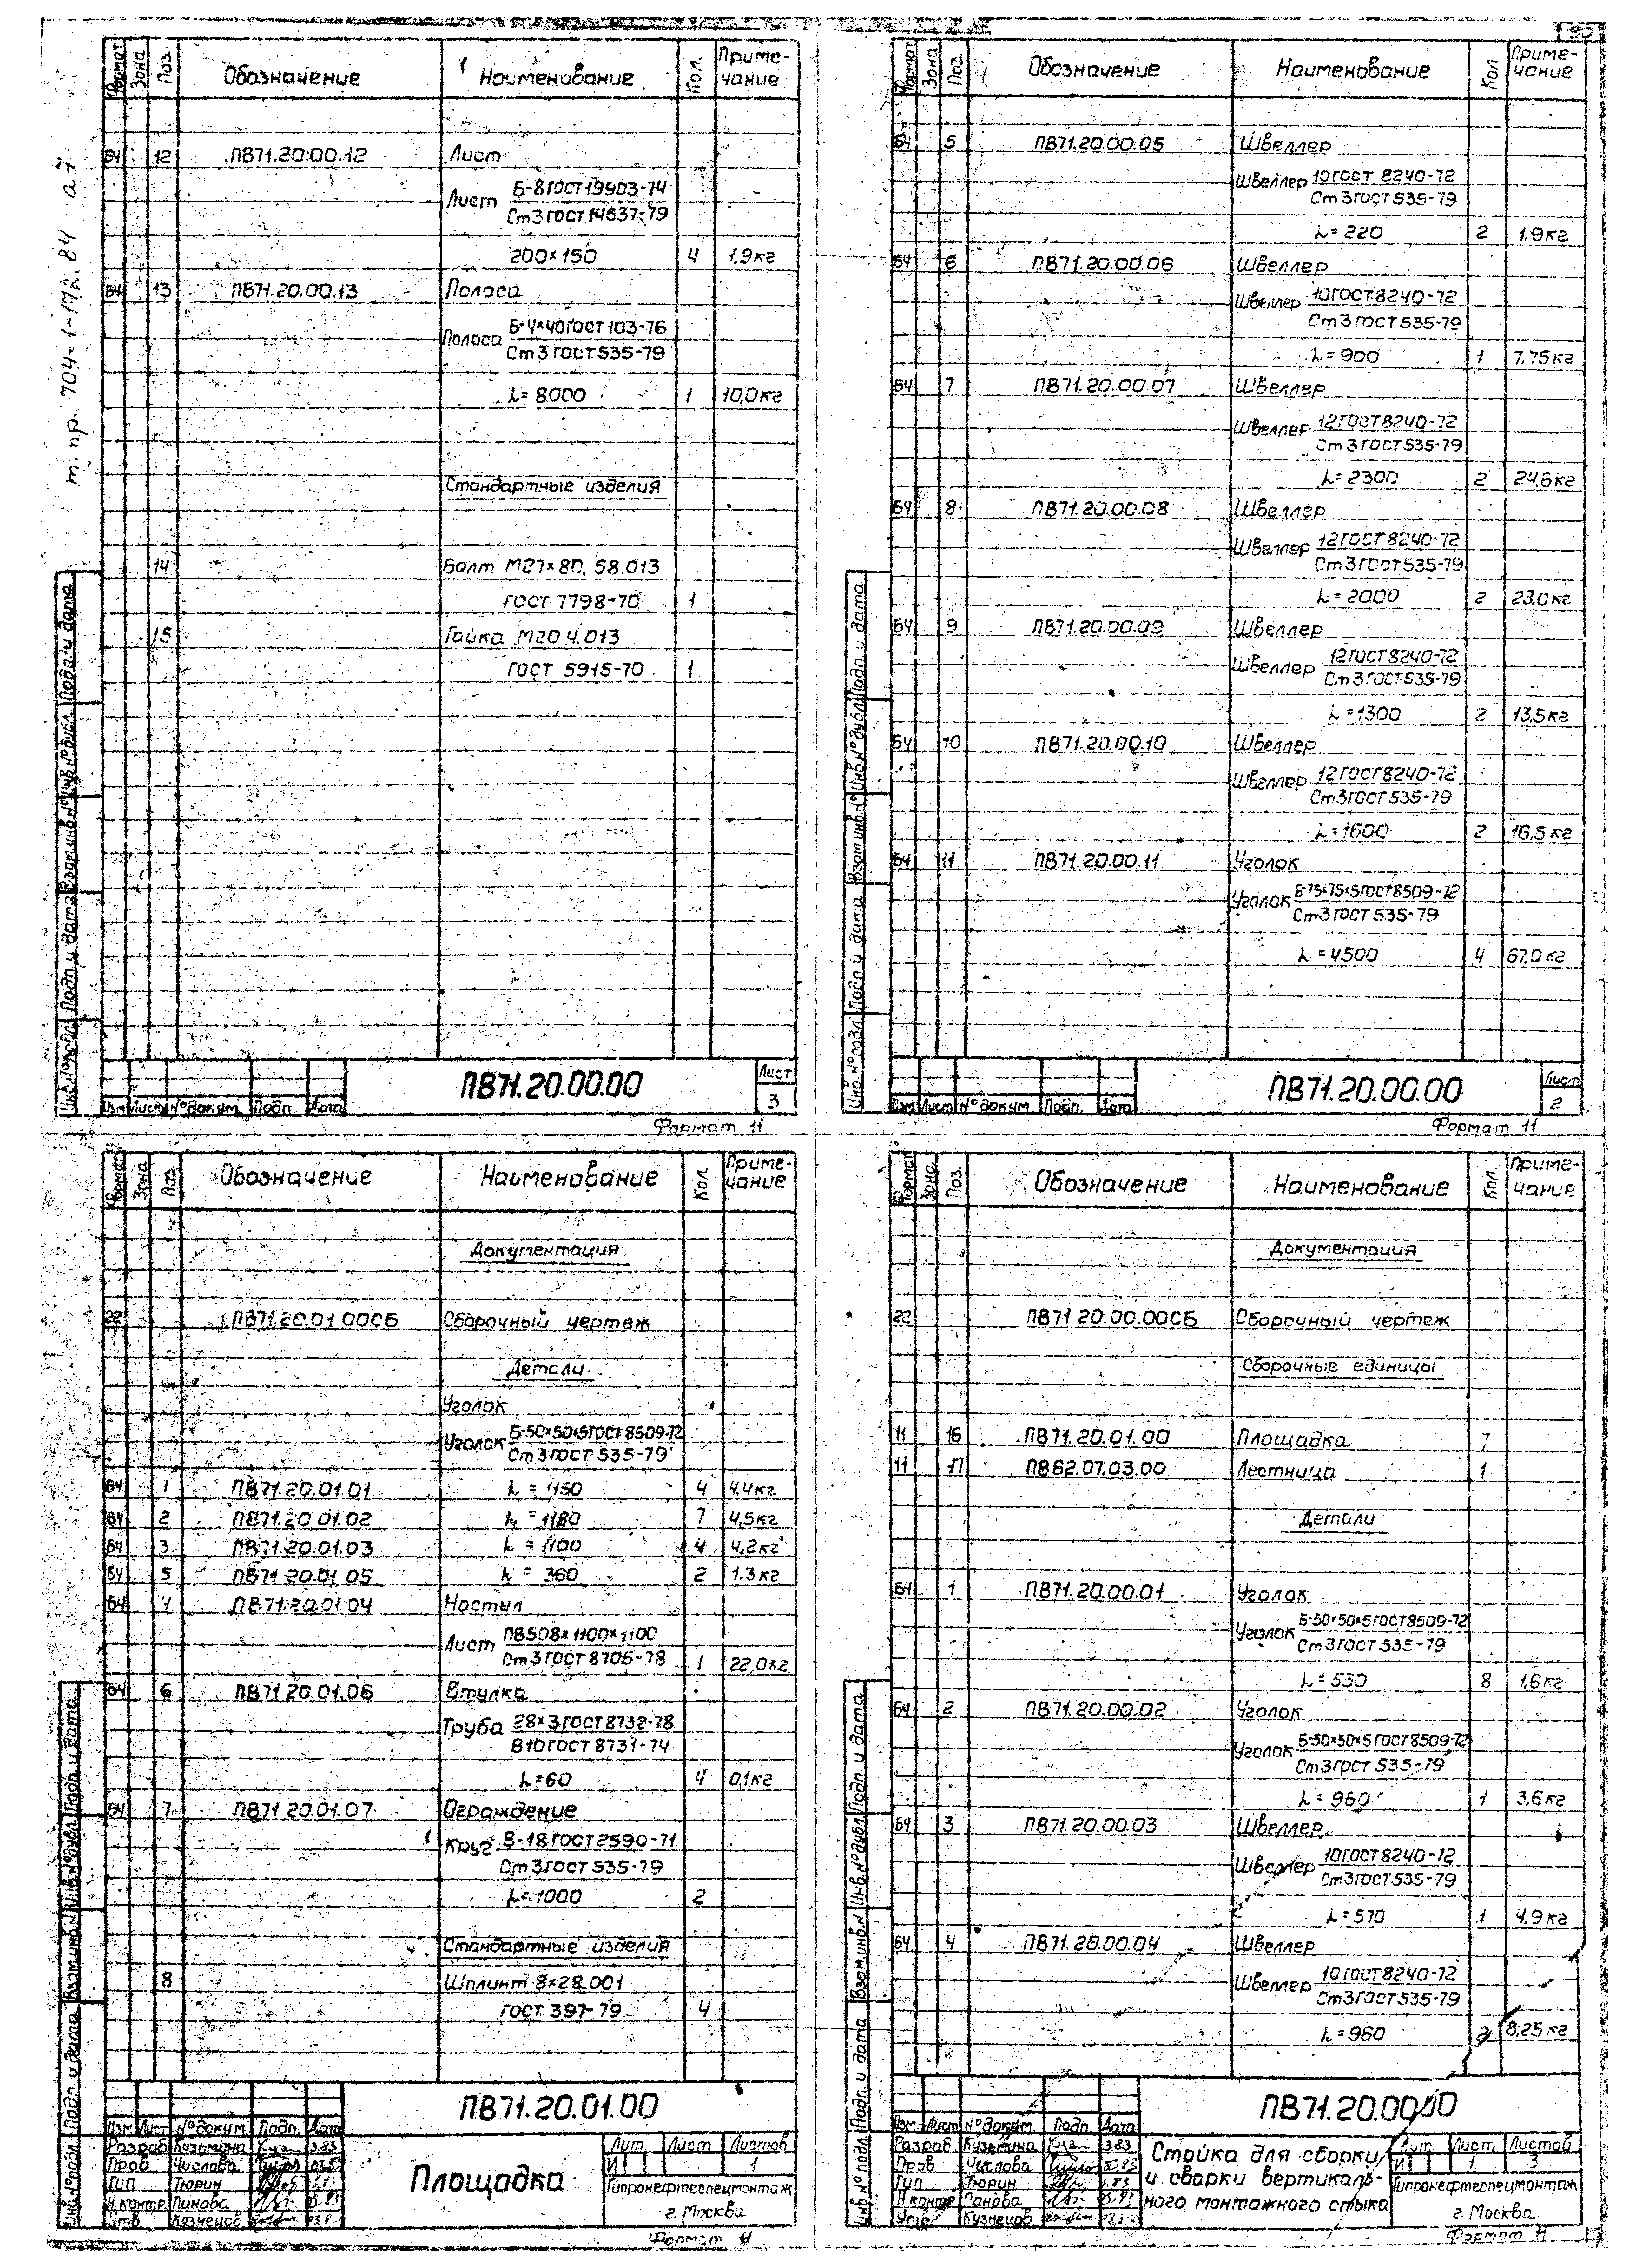 т. пр. 704-1-172.84 а 7
Формат Зона Поз. Обозначение Наименование Кол. Примечание
БЧ 12 ПВ71.20.00.12 Лист
Лист Б-8 ГОСТ 19903-74
Ст3 ГОСТ 14637-79
200×150 4 1.9кг
БЧ 13 ПВ71.20.00.13 Полоса
Полоса Б-4×40 ГОСТ 103-76
Ст3 ГОСТ 535-79
L=8000 1 10,0кг
Стандартные изделия
14 Болт М27×80. 58.013
ГОСТ 7798-70 1
15 Гайка М20 4.013
ГОСТ 5915-70 1
Инв. № подл. Подп. и дата Взам. инв. № Инв. № дубл. Подп. и дата
Изм Лист № докум. Подп. Дата
ПВ71.20.00.00
Лист
3
Формат 11
90
Формат Зона Поз. Обозначение Наименование Кол Примечание
БЧ 5 ПВ71.20.00.05 Швеллер
Швеллер 10 ГОСТ 8240-72
Ст3 ГОСТ 535-79
L=220 2 1.9кг
БЧ 6 ПВ71.20.00.06 Швеллер
Швеллер 10 ГОСТ 8240-72
Ст3 ГОСТ 535-79
L=900 1 7.75кг
БЧ 7 ПВ71.20.00.07 Швеллер
Швеллер 12 ГОСТ 8240-72
Ст3 ГОСТ 535-79
L=2300 2 24,6кг
БЧ 8 ПВ71.20.00.08 Швеллер
Швеллер 12 ГОСТ 8240-72
Ст3 ГОСТ 535-79
L=2000 2 23,0кг
БЧ 9 ПВ71.20.00.09 Швеллер
Швеллер 12 ГОСТ 8240-72
Ст3 ГОСТ 535-79
L=1300 2 13,5кг
БЧ 10 ПВ71.20.00.10 Швеллер
Швеллер 12 ГОСТ 8240-72
Ст3 ГОСТ 535-79
L=1600 2 16,5кг
БЧ 11 ПВ71.20.00.11 Уголок
Уголок Б-75×75×5 ГОСТ 8509-72
Ст3 ГОСТ 535-79
L=4500 4 67.0кг
Инв. № подл. Подп. и дата Взам. инв. № Инв. № дубл. Подп. и дата
Изм Лист № докум. Подп. Дата
ПВ71.20.00.00
Лист
2
Формат 11
Формат Зона Поз. Обозначение Наименование Кол. Примечание
Документация
22 ПВ71.20.01 00СБ Сборочный чертеж
Детали
Уголок
Уголок Б-50×50×5 ГОСТ 8509-72
Ст3 ГОСТ 535-79
БЧ 1 ПВ71.20.01.01 L=1150 4 4.4кг
БЧ 2 ПВ71.20.01.02 L=1180 7 4,5кг
БЧ 3 ПВ71.20.01.03 L=1100 4 4,2кг
БЧ 5 ПВ71.20.01.05 L=360 2 1.3кг
БЧ ПВ71.20.01.04 Настил
Лист ПВ508×1100×1100
Ст3 ГОСТ 8706-78 1 22,0кг
БЧ 6 ПВ71.20.01.06 Втулка
Труба 28×3 ГОСТ 8732-78
В10 ГОСТ 8731-74
L=60 4 0,1кг
БЧ 7 ПВ71.20.01.07 Ограждение
Круг В-18 ГОСТ 2590-71
Ст3 ГОСТ 535-79
L=1000 2
Стандартные изделия
8 Шплинт 8×28.001
ГОСТ 397-79 4
Инв. № подл. Подп. и дата Взам. инв. № Инв. № дубл. Подп. и дата
ПВ71.20.01.00
Изм. Лист № докум. Подп. Дата
Разраб Кузьмина 3.83
Пров. Числова
Гип Тюрин
Н.контр. Панова
Утв. Кузнецов
Площадка
Лит. Лист Листов
И 1
Гипронефтеспецмонтаж
г. Москва
Формат 11
Формат Зона Поз. Обозначение Наименование Кол. Примечание
Документация
22 ПВ71 20.00.00СБ Сборочный чертеж
Сборочные единицы
11 16 ПВ71.20.01.00 Площадка 7
11 17 ПВ62.07.03.00 Лестница 1
Детали
БЧ 1 ПВ71.20.00.01 Уголок
Уголок Б-50×50×5 ГОСТ 8509-72
Ст3 ГОСТ 535-79
L=530 8 1,6кг
БЧ 2 ПВ71.20.00.02 Уголок
Уголок Б-50×50×5 ГОСТ 8509-72
Ст3 ГОСТ 535-79
L=960 1 3,6кг
БЧ 3 ПВ71.20.00.03 Швеллер
Швеллер 10 ГОСТ 8240-72
Ст3 ГОСТ 535-79
L=570 1 4,9кг
БЧ 4 ПВ71.20.00.04 Швеллер
Швеллер 10 ГОСТ 8240-72
Ст3 ГОСТ 535-79
L=960 2 8,25кг
Инв № подл. Подп. и дата Взам. инв. № Инв. № дубл. Подп. и дата
ПВ71.20.00.00
Изм. Лист № докум. Подп. Дата
Разраб Кузьмина 3.83
Пров. Числова
Гип Тюрин
Н.контр. Панова
Утв. Кузнецов
Стойка для сборки
и сварки вертикаль-
ного монтажного стыка
Лит. Лист Листов
И 1 3
Гипронефтеспецмонтаж
г. Москва
Формат 11